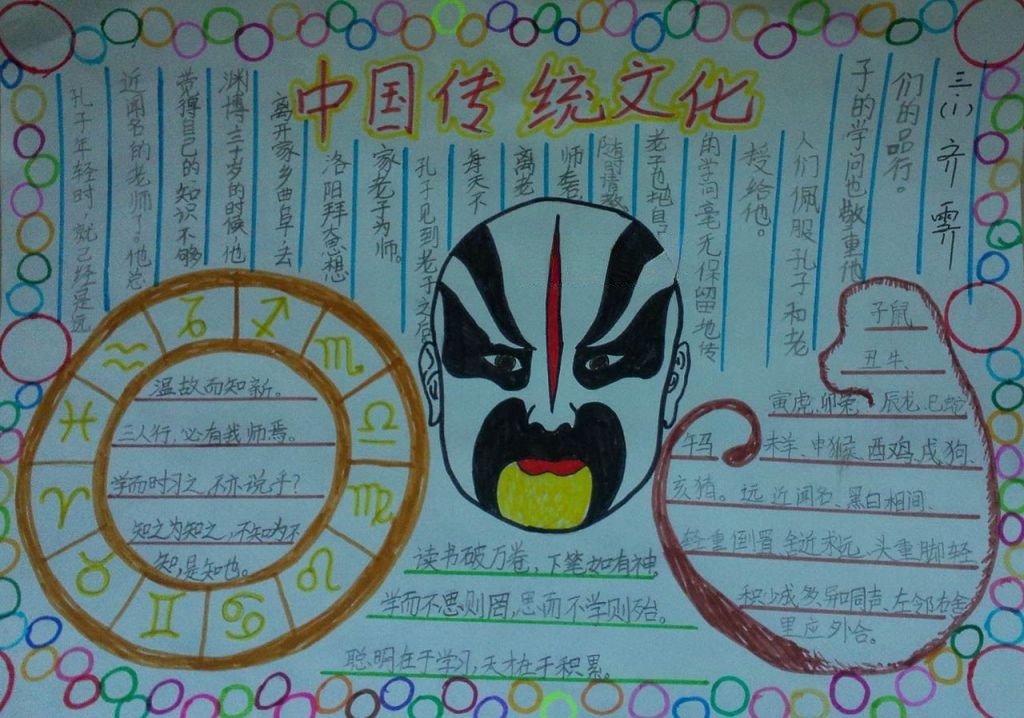 中国传统文化
三(1) 齐霁
孔子年轻时,就已经是远
近闻名的老师了。他总
觉得自己的知识不够
渊博三十岁的时候,他
离开家乡曲阜,去
洛阳拜大思想
家老子为师。
孔子见到老子之后
每天不
离老
师左
随时请教
老子也把自
的学问毫无保留地传
授给他。
人们佩服孔子和老
子的学问也敬重他
们的品行。
温故而知新。
三人行,必有我师焉。
学而时习之,不亦说乎?
知之为知之,不知为不
知,是知也。
读书破万卷,下笔如有神,
学而不思则罔,思而不学则殆。
聪明在于学习,天才在于积累。
子鼠
丑牛、
寅虎,卯兔、辰龙、巳蛇
午马 未羊、申猴、酉鸡,戌狗、
亥猪。远近闻名、黑白相间、
轻重倒置、舍近求远、头重脚轻、
积少成多、异口同声、左邻右舍
里应外合。